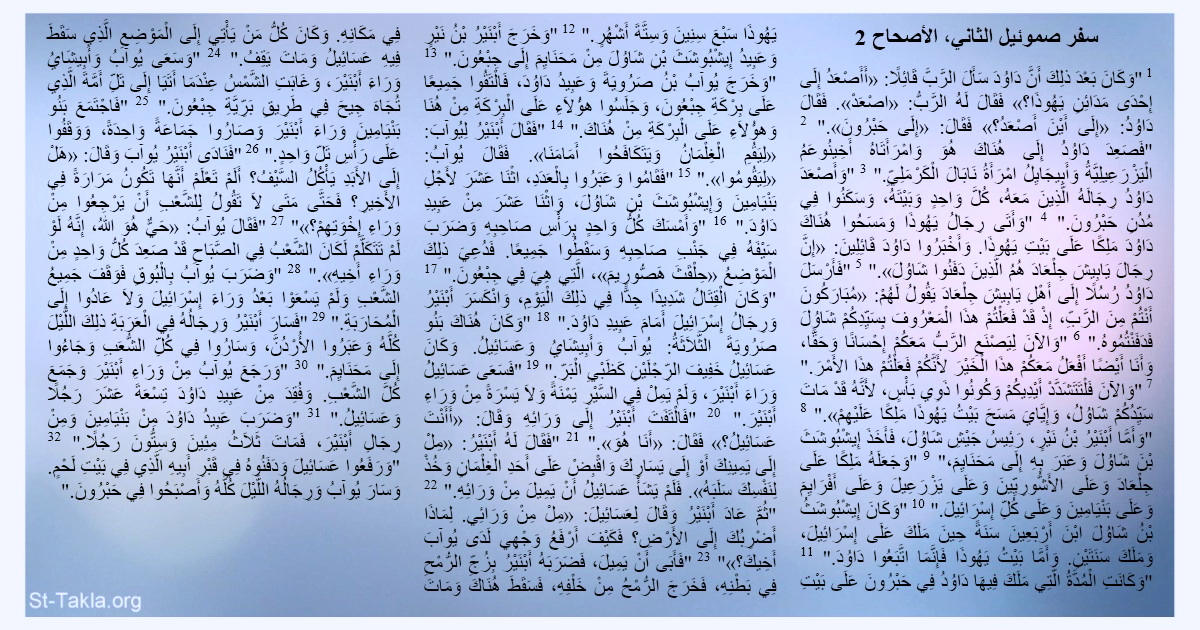 سفر صموئيل الثاني، الأصحاح 2
1 "وَكَانَ بَعْدَ ذلِكَ أَنَّ دَاوُدَ سَأَلَ الرَّبَّ قَائِلًا: «أَأَصْعَدُ إِلَى
إِحْدَى مَدَائِنِ يَهُوذَا؟» فَقَالَ لَهُ الرَّبُّ: «اصْعَدْ». فَقَالَ
دَاوُدُ: «إِلَى أَيْنَ أَصْعَدُ؟» فَقَالَ: «إِلَى حَبْرُونَ»." 2
"فَصَعِدَ دَاوُدُ إِلَى هُنَاكَ هُوَ وَامْرَأَتَاهُ أَخِينُوعَمُ
الْيَزْرَعِيلِيَّةُ وَأَبِيجَايِلُ امْرَأَةُ نَابَالَ الْكَرْمَلِيِّ." 3 "وَأَصْعَدَ
دَاوُدُ رِجَالَهُ الَّذِينَ مَعَهُ، كُلَّ وَاحِدٍ وَبَيْتَهُ، وَسَكَنُوا فِي
مُدُنِ حَبْرُونَ." 4 "وَأَتَى رِجَالُ يَهُوذَا وَمَسَحُوا هُنَاكَ
دَاوُدَ مَلِكًا عَلَى بَيْتِ يَهُوذَا. وَأَخْبَرُوا دَاوُدَ قَائِلِينَ: «إِنَّ
رِجَالَ يَابِيشَ جِلْعَادَ هُمُ الَّذِينَ دَفَنُوا شَاوُلَ»." 5 "فَأَرْسَلَ
دَاوُدُ رُسُلًا إِلَى أَهْلِ يَابِيشَ جِلْعَادَ يَقُولُ لَهُمْ: «مُبَارَكُونَ
أَنْتُمْ مِنَ الرَّبِّ، إِذْ قَدْ فَعَلْتُمْ هذَا الْمَعْرُوفَ بِسَيِّدِكُمْ شَاوُلَ
فَدَفَنْتُمُوهُ." 6 "وَالآنَ لِيَصْنَعِ الرَّبُّ مَعَكُمْ إِحْسَانًا وَحَقًّا،
وَأَنَا أَيْضًا أَفْعَلُ مَعَكُمْ هذَا الْخَيْرَ لأَنَّكُمْ فَعَلْتُمْ هذَا الأَمْرَ."
7 "وَالآنَ فَلْتَتَشَدَّدْ أَيْدِيكُمْ وَكُونُوا ذَوِي بَأْسٍ، لأَنَّهُ قَدْ مَاتَ
سَيِّدُكُمْ شَاوُلُ، وَإِيَّايَ مَسَحَ بَيْتُ يَهُوذَا مَلِكًا عَلَيْهِمْ»." 8
"وَأَمَّا أَبْنَيْرُ بْنُ نَيْرٍ، رَئِيسُ جَيْشِ شَاوُلَ، فَأَخَذَ إِيشْبُوشَثَ
بْنَ شَاوُلَ وَعَبَرَ بِهِ إِلَى مَحَنَايِمَ،" 9 "وَجَعَلَهُ مَلِكًا عَلَى
جِلْعَادَ وَعَلَى الأَشُّورِيِّينَ وَعَلَى يَزْرَعِيلَ وَعَلَى أَفْرَايِمَ
وَعَلَى بَنْيَامِينَ وَعَلَى كُلِّ إِسْرَائِيلَ." 10 "وَكَانَ إِيشْبُوشَثُ
بْنُ شَاوُلَ ابْنَ أَرْبَعِينَ سَنَةً حِينَ مَلَكَ عَلَى إِسْرَائِيلَ،
وَمَلَكَ سَنَتَيْنِ. وَأَمَّا بَيْتُ يَهُوذَا فَإِنَّمَا اتَّبَعُوا دَاوُدَ." 11
"وَكَانَتِ الْمُدَّةُ الَّتِي مَلَكَ فِيهَا دَاوُدُ فِي حَبْرُونَ عَلَى بَيْتِ
يَهُوذَا سَبْعَ سِنِينَ وَسِتَّةَ أَشْهُرٍ." 12 "وَخَرَجَ أَبْنَيْرُ بْنُ نَيْرٍ
وَعَبِيدُ إِيشْبُوشَثَ بْنِ شَاوُلَ مِنْ مَحَنَايِمَ إِلَى جِبْعُونَ." 13
"وَخَرَجَ يُوآبُ بْنُ صَرُويَةَ وَعَبِيدُ دَاوُدَ، فَالْتَقُوا جَمِيعًا
عَلَى بِرْكَةِ جِبْعُونَ، وَجَلَسُوا هؤُلاَءِ عَلَى الْبِرْكَةِ مِنْ هُنَا
وَهؤُلاَءِ عَلَى الْبِرْكَةِ مِنْ هُنَاكَ." 14 "فَقَالَ أَبْنَيْرُ لِيُوآبَ:
«لِيَقُمِ الْغِلْمَانُ وَيَتَكَافَحُوا أَمَامَنَا». فَقَالَ يُوآبُ:
«لِيَقُومُوا»." 15 "فَقَامُوا وَعَبَرُوا بِالْعَدَدِ، اثْنَا عَشَرَ لأَجْلِ
بَنْيَامِينَ وَإِيشْبُوشَثَ بْنِ شَاوُلَ، وَاثْنَا عَشَرَ مِنْ عَبِيدِ
دَاوُدَ." 16 "وَأَمْسَكَ كُلُّ وَاحِدٍ بِرَأْسِ صَاحِبِهِ وَضَرَبَ
سَيْفَهُ فِي جَنْبِ صَاحِبِهِ وَسَقَطُوا جَمِيعًا. فَدُعِيَ ذلِكَ
الْمَوْضِعُ «حِلْقَثَ هَصُّورِيمَ»، الَّتِي هِيَ فِي جِبْعُونَ." 17
"وَكَانَ الْقِتَالُ شَدِيدًا جِدًّا فِي ذلِكَ الْيَوْمِ، وَانْكَسَرَ أَبْنَيْرُ
وَرِجَالُ إِسْرَائِيلَ أَمَامَ عَبِيدِ دَاوُدَ." 18 "وَكَانَ هُنَاكَ بَنُو
صَرُويَةَ الثَّلاَثَةُ: يُوآبُ وَأَبِيشَايُ وَعَسَائِيلُ. وَكَانَ
عَسَائِيلُ خَفِيفَ الرِّجْلَيْنِ كَظَبْيِ الْبَرِّ." 19 "فَسَعَى عَسَائِيلُ
وَرَاءَ أَبْنَيْرَ، وَلَمْ يَمِلْ فِي السَّيْرِ يَمْنَةً وَلاَ يَسْرَةً مِنْ وَرَاءِ
أَبْنَيْرَ." 20 "فَالْتَفَتَ أَبْنَيْرُ إِلَى وَرَائِهِ وَقَالَ: «أَأَنْتَ
عَسَائِيلُ؟» فَقَالَ: «أَنَا هُوَ»." 21 "فَقَالَ لَهُ أَبْنَيْرُ: «مِلْ
إِلَى يَمِينِكَ أَوْ إِلَى يَسَارِكَ وَاقْبِضْ عَلَى أَحَدِ الْغِلْمَانِ وَخُذْ
لِنَفْسِكَ سَلَبَهُ». فَلَمْ يَشَأْ عَسَائِيلُ أَنْ يَمِيلَ مِنْ وَرَائِهِ." 22
"ثُمَّ عَادَ أَبْنَيْرُ وَقَالَ لِعَسَائِيلَ: «مِلْ مِنْ وَرَائِي. لِمَاذَا
أَضْرِبُكَ إِلَى الأَرْضِ؟ فَكَيْفَ أَرْفَعُ وَجْهِي لَدَى يُوآبَ
أَخِيكَ؟»" 23 "فَأَبَى أَنْ يَمِيلَ، فَضَرَبَهُ أَبْنَيْرُ بِزُجِّ الرُّمْحِ
فِي بَطْنِهِ، فَخَرَجَ الرُّمْحُ مِنْ خَلْفِهِ، فَسَقَطَ هُنَاكَ وَمَاتَ
فِي مَكَانِهِ. وَكَانَ كُلُّ مَنْ يَأْتِي إِلَى الْمَوْضِعِ الَّذِي سَقَطَ
فِيهِ عَسَائِيلُ وَمَاتَ يَقِفُ." 24 "وَسَعَى يُوآبُ وَأَبِيشَايُ
وَرَاءَ أَبْنَيْرَ، وَغَابَتِ الشَّمْسُ عِنْدَمَا أَتَيَا إِلَى تَلِّ أَمَّةَ الَّذِي
تُجَاهَ جِيحَ فِي طَرِيقِ بَرِّيَّةِ جِبْعُونَ." 25 "فَاجْتَمَعَ بَنُو
بَنْيَامِينَ وَرَاءَ أَبْنَيْرَ وَصَارُوا جَمَاعَةً وَاحِدَةً، وَوَقَفُوا
عَلَى رَأْسِ تَلّ وَاحِدٍ." 26 "فَنَادَى أَبْنَيْرُ يُوآبَ وَقَالَ: «هَلْ
إِلَى الأَبَدِ يَأْكُلُ السَّيْفُ؟ أَلَمْ تَعْلَمْ أَنَّهَا تَكُونُ مَرَارَةً فِي
الأَخِيرِ؟ فَحَتَّى مَتَى لاَ تَقُولُ لِلشَّعْبِ أَنْ يَرْجِعُوا مِنْ
وَرَاءِ إِخْوَتِهِمْ؟»" 27 "فَقَالَ يُوآبُ: «حَيٌّ هُوَ اللهُ، إِنَّهُ لَوْ
لَمْ تَتَكَلَّمْ لَكَانَ الشَّعْبُ فِي الصَّبَاحِ قَدْ صَعِدَ كُلُّ وَاحِدٍ مِنْ
وَرَاءِ أَخِيهِ»." 28 "وَضَرَبَ يُوآبُ بِالْبُوقِ فَوَقَفَ جَمِيعُ
الشَّعْبِ وَلَمْ يَسْعَوْا بَعْدُ وَرَاءَ إِسْرَائِيلَ وَلاَ عَادُوا إِلَى
الْمُحَارَبَةِ." 29 "فَسَارَ أَبْنَيْرُ وَرِجَالُهُ فِي الْعَرَبَةِ ذلِكَ اللَّيْلَ
كُلَّهُ وَعَبَرُوا الأُرْدُنَّ، وَسَارُوا فِي كُلِّ الشَّعَبِ وَجَاءُوا
إِلَى مَحَنَايِمَ." 30 "وَرَجَعَ يُوآبُ مِنْ وَرَاءِ أَبْنَيْرَ وَجَمَعَ
كُلَّ الشَّعْبِ. وَفُقِدَ مِنْ عَبِيدِ دَاوُدَ تِسْعَةَ عَشَرَ رَجُلًا
وَعَسَائِيلُ." 31 "وَضَرَبَ عَبِيدُ دَاوُدَ مِنْ بَنْيَامِينَ وَمِنْ
رِجَالِ أَبْنَيْرَ، فَمَاتَ ثَلاَثُ مِئِينَ وَسِتُّونَ رَجُلًا." 32
"وَرَفَعُوا عَسَائِيلَ وَدَفَنُوهُ فِي قَبْرِ أَبِيهِ الَّذِي فِي بَيْتِ لَحْمٍ.
وَسَارَ يُوآبُ وَرِجَالُهُ اللَّيْلَ كُلَّهُ وَأَصْبَحُوا فِي حَبْرُونَ."
St-Takla.org